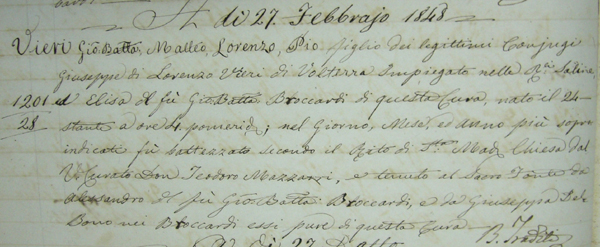 A dì 27. Febbrajo 1848
Vieri Gio: Batta, Matteo, Lorenzo, Pio figlio dei legittimi Conjugi
Giuseppe di Lorenzo Vieri di Volterra Impiegato nelle Re. Saline
1201 ed Elisa del fù Gio: Batta Broccardi di questa Cura, nato il 24
28 stante a ore 4. pomerid; nel Giorno, Mese, ed anno più sopra
indicati fù battezzato secondo il Rito di Sta. Mad. Chiesa dal
V. Curato Don Teodoro Mazzarri, e tenuto al Sacro Fonte da
Alessandro del fù Gio: Batta Broccardi, e da Giuseppa Del
Bono nei Broccardi essi pure di questa Cura
dì 27